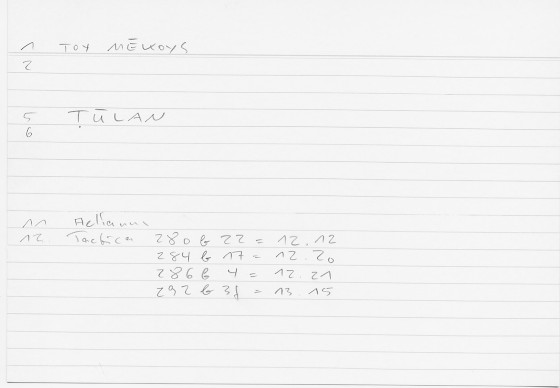 1 ΤΟΥ ΜĒΚΟΥS
2
5 ṬŪLAN
6
11 Aelianus
12 Tactica 280 b 22 = 12.12
284 b 17 = 12.20
286 b 4 = 12.21
292 b 3f = 13.15